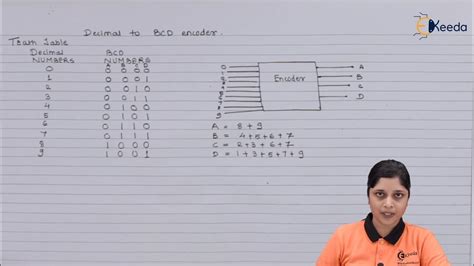 Decimal to BCD encoder.
Ekeeda
Truth Table
Decimal BCD
NUMBERS NUMBERS
A B C D
0 0 0 0 0
1 0 0 0 1
2 0 0 1 0
3 0 0 1 1
4 0 1 0 0
5 0 1 0 1
6 0 1 1 0
7 0 1 1 1
8 1 0 0 0
9 1 0 0 1
0
1
9
Encoder
A
B
C
D
A = 8+9
B = 4+5+6+7
C = 2+3+6+7
D = 1+3+5+7+9